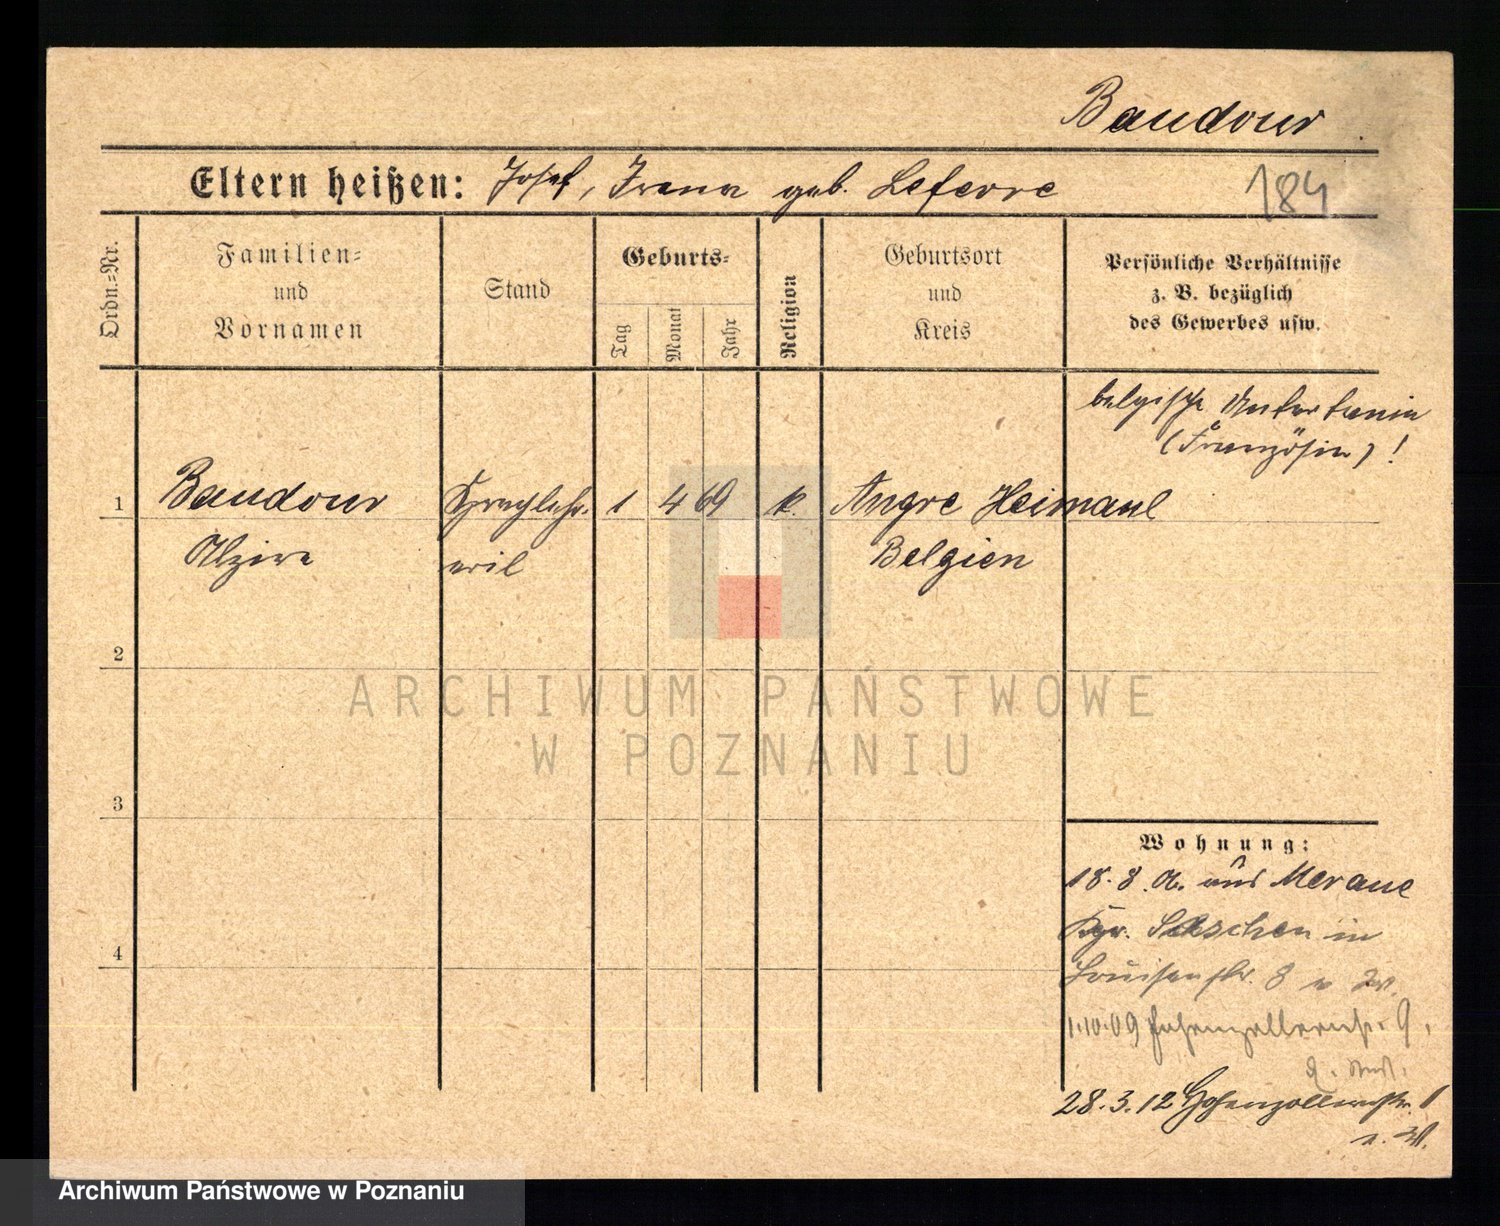 Baudour
Eltern heißen: Josef, Irena geb. Leferre
184
Ordn.=Nr.
Familien=
und
Vornamen
Stand
Geburts=
Tag
Monat
Jahr
Religion
Geburtsort
und
Kreis
Persönliche Verhältnisse
z. B. bezüglich
des Gewerbes usw.
belgische Untertanin
(Französin)!
1 Baudour Sprachlehr. 1 4 69 k. Angre Heimaul
Alzire Belgien
2
ARCHIWUM PAŃSTWOWE
W POZNANIU
3
Wohnung:
18.8. aus Merane
Kgr. Saschen in
4
Louisenstr. 8
1.10.09 Hohenzollernstr. 9.
28.3.12 Hohenzollernstr. 1
Archiwum Państwowe w Poznaniu